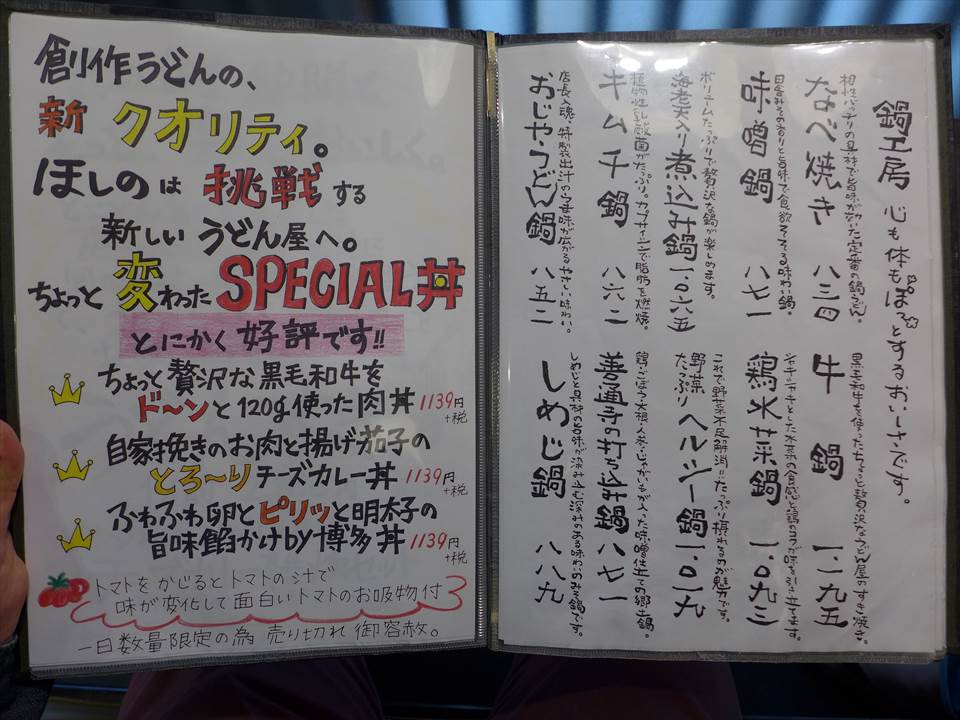 創作うどんの、
新 クオリティ。
ほしのは 挑戦する
新しい うどん屋へ。
ちょっと 変わった SPECIAL丼
とにかく 好評です!!
ちょっと 贅沢な 黒毛和牛を
ド〜ンと 120g使った 肉丼 1139円+税
自家挽きのお肉と揚げ茄子の
とろ〜り チーズカレー丼 1139円+税
ふわふわ卵とピリッと明太子の
旨味餡かけby博多丼 1139円+税
トマトをかじるとトマトの汁で
味が変化して面白いトマトのお吸物付
一日数量限定の為 売り切れ 御容赦。
鍋工房 心も体もぽっとするおいしさです。
相性バッチリの具材で旨味が効いた定番の鍋うどん。
なべ焼き 八三四
田舎みその香りと旨味で食欲そそる味わい鍋。
味噌鍋 八七一
ボリュームたっぷりで贅沢な鍋が楽しめます。
海老天入り煮込み鍋 一、〇六五
植物性乳酸菌がたっぷり。カプサイシンで脂肪を燃焼。
キムチ鍋 八六二
店長入魂、特製出汁のうま味が広がるやさしい味わい。
おじやうどん鍋 八五二
黒毛和牛を使ったちょっと贅沢なうどん屋のすき焼き。
牛鍋 一、一九五
シャキシャキとした水菜の食感と鶏のコクが味を引き立てます。
鶏水菜鍋 一、〇九三
これで野菜不足解消!!たっぷり摂れるのが魅力です。
野菜たっぷりヘルシー鍋 一、〇二九
鶏・ごぼう・大根・人参・じゃがいもが入った味噌仕立ての郷土鍋。
善通寺の打ち込み鍋 八七一
しめじと具材の旨味が染み込む深みのある味わいのみそ鍋です。
しめじ鍋 八八九